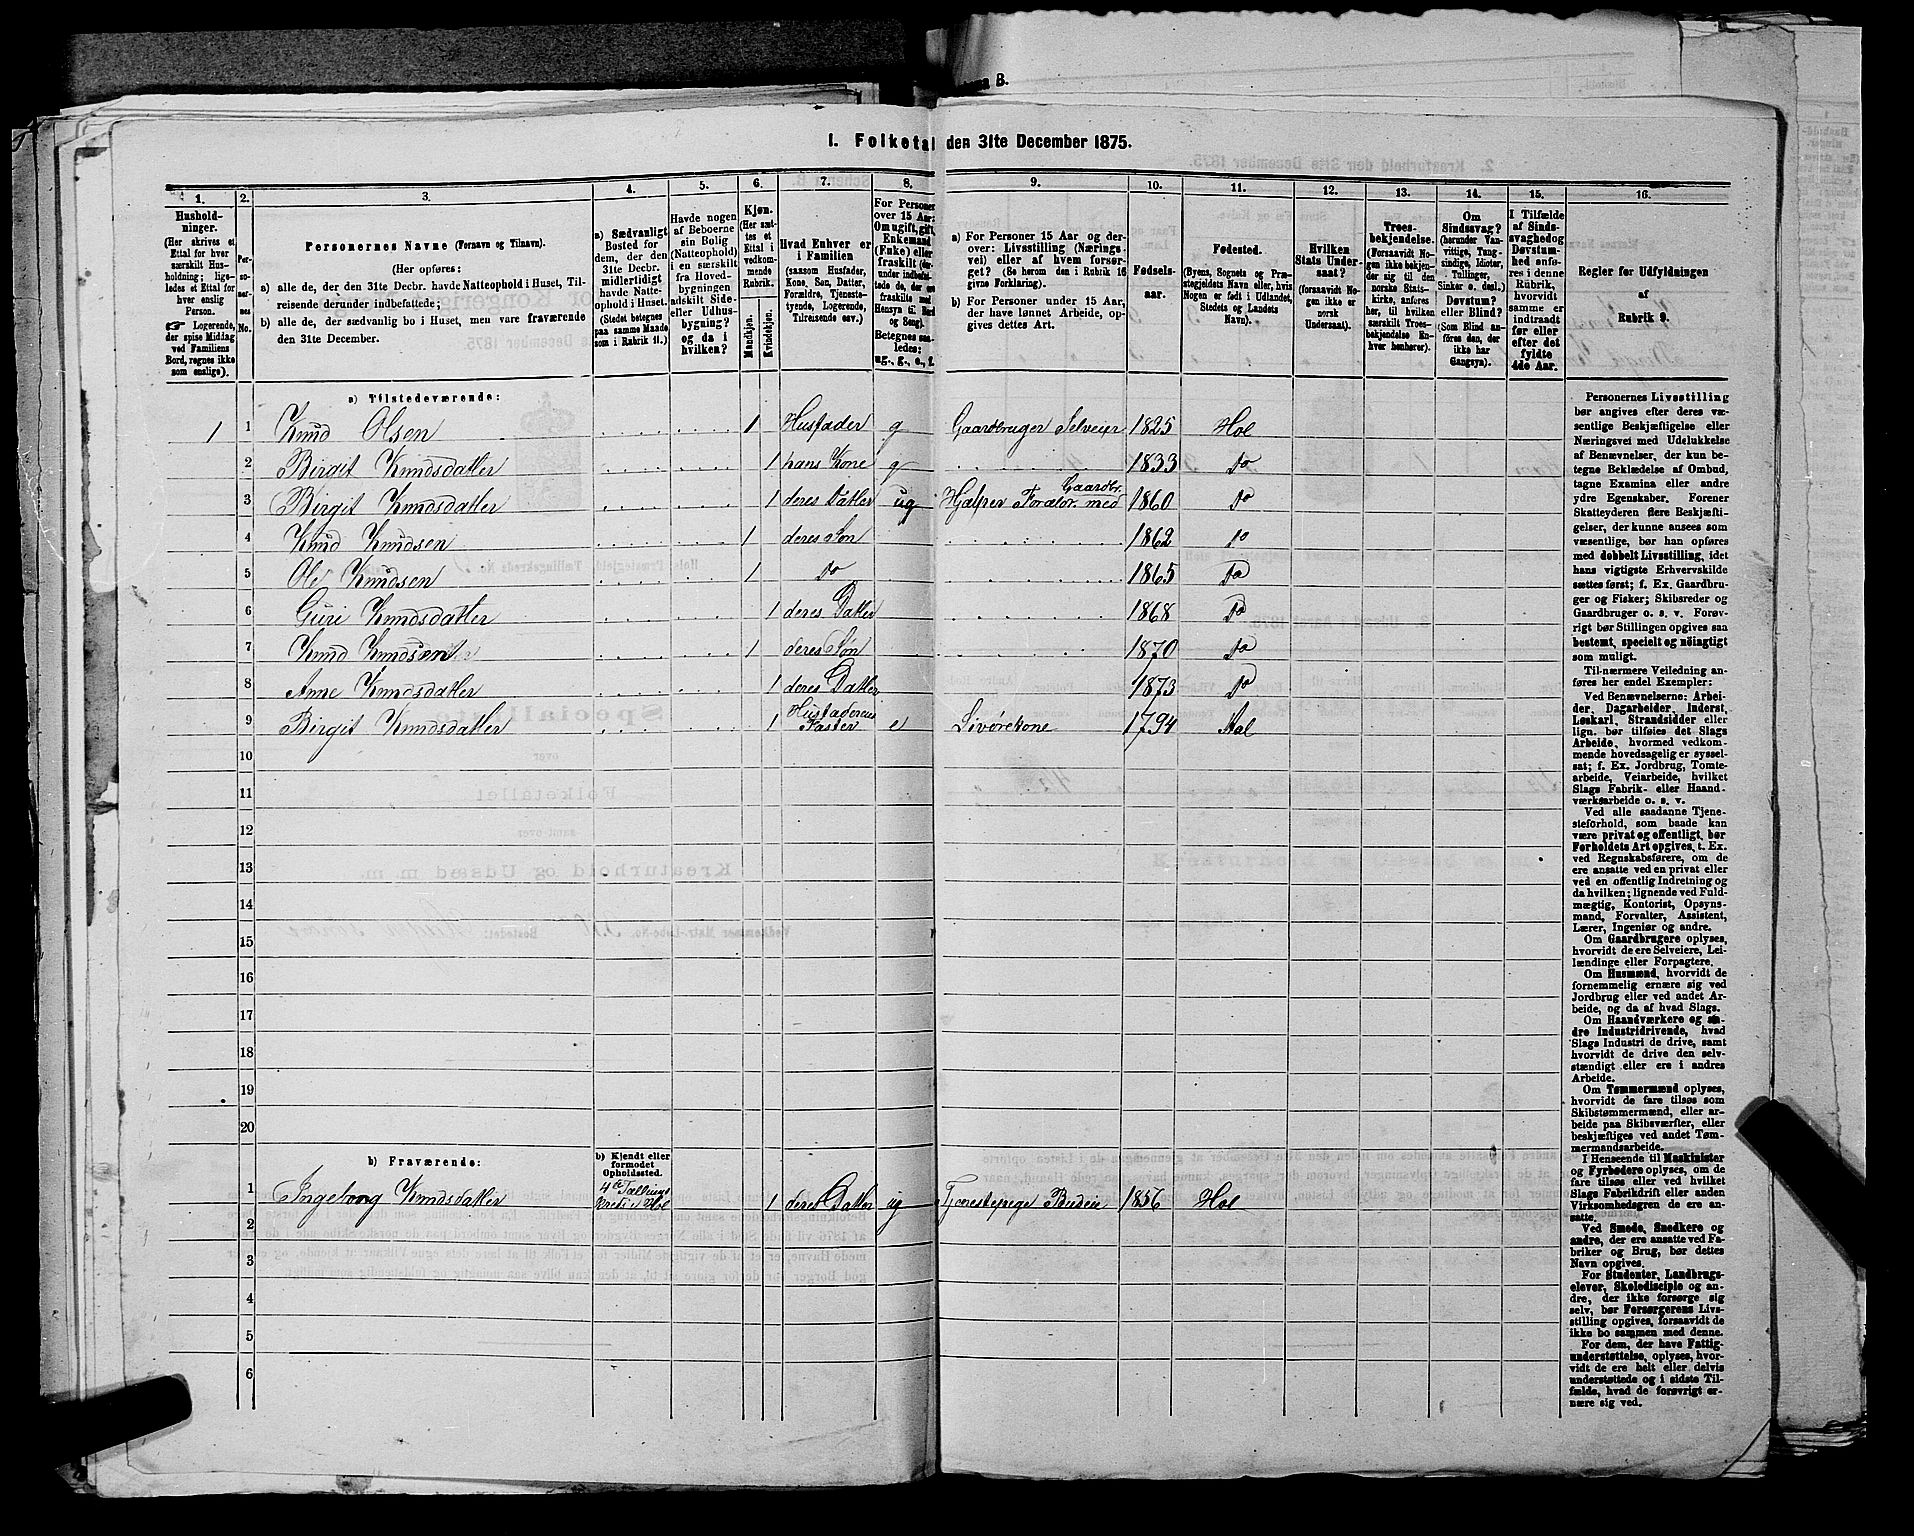 I. Folketal den 31te December 1875.
1. 2. 3. 4. 5. 6. 7. 8. 9. 10. 11. 12. 13. 14. 15. 16.
Husholdninger. (Her skrives et Ettal for hver særskilt Husholdning; ligeledes et Ettal for hver enslig Person. ☞ Logerende, der spise Middag ved Familiens Bord, regnes ikke som enslige).
Personernes No.
Personernes Navne (Fornavn og Tilnavn).
(Her opføres:
a) alle de, der den 31te Decbr. havde Natteophold i Huset, Tilreisende derunder indbefattede;
b) alle de, der sædvanlig bo i Huset, men vare fraværende den 31te December.
a) Sædvanligt Bosted for dem, der den 31te Decbr. midlertidigt havde Natteophold i Huset. (Stedet betegnes paa samme Maade som i Rubrik 11.)
Havde nogen af Beboerne sin Bolig (Natteophold) i en særskilt fra Hovedbygningen adskilt Side- eller Udhusbygning? og da i hvilken?
Kjøn. (Her sættes et Ettal i vedkommende Rubrik. Mandkjøn. Kvindekjøn.
Hvad Enhver er i Familien (saasom Husfader, Kone, Søn, Datter, Forældre, Tjenestetyende, Logerende, Tilreisende osv.)
For Personer over 15 Aar: Om ugift, gift, Enkemand (Enke) eller fraskilt
Betegnes saaledes: ug., g., e., f.
a) For Personer 15 Aar og derover: Livsstilling (Næringsvei) eller af hvem forsørget? (Se herom den i Rubrik 16 givne Forklaring).
b) For Personer under 15 Aar, der have lønnet Arbeide, opgives dettes Art.
Fødselsaar.
Fødested. (Byens, Sognets og Præstegjeldets Navn eller, hvis Nogen er født i Udlandet, Stedets og Landets Navn).
Hvilken Stats Undersaat? (forsaavidt Nogen ikke er norsk Undersaat).
Troesbekjendelse. (Forsaavidt Nogen ikke bekjender sig til den norske Statskirke, anføres her, til hvilken særskilt Troesbekjendelse Enhver henhører).
Om Sindssvag? (herunder Vanvittige, Tungsindige, Idioter, Tullinger, Sinker o. desl.). Døvstum? eller Blind? (Som Blind anføres den, der ikke har Gangsyn).
I Tilfælde af Sindssvaghed og Døvstumhed anføres i denne Rubrik, hvorvidt samme er indtraadt før eller efter det fyldte 4de Aar.
Regler for Udfyldningen af Rubrik 9.
a) Tilstedeværende:
1 1 Knud Olsen 1 Husfader g Gaardbruger Selveier 1825 Hol
2 Birgit Knudsdatter 1 hans Kone g 1833 Do
3 Birgit Knudsdatter 1 deres Datter ug Hjælper Forældr. med Gaardbr. 1860 Do
4 Knud Knudsen 1 deres Søn 1862 Do
5 Ole Knudsen 1 Do 1865 Do
6 Guri Knudsdatter 1 deres Datter 1868 Do
7 Knud Knudsen 1 deres Søn 1870 Do
8 Anne Knudsdatter 1 deres Datter 1873 Do
9 Birgit Knudsdatter 1 Husfaderens Faster e Livørekone 1794 Hol
10
11
12
13
14
15
16
17
18
19
20
b) Fraværende:
b) Kjendt eller formodet Opholdssted.
1 Ingeborg Knudsdatter 4de Tællings Kreds i Hol 1 deres Datter ug Tjenestepige Budeie 1856 Hol
2
3
4
5
6
Personernes Livsstilling
bør angives efter deres væ-
sentlige Beskjæftigelse eller
Næringsvei med Udelukkelse
af Benævnelser, der kun be-
tegne Beklædelse af Ombud,
tagne Examina eller andre
ydre Egenskaber. Forener
Skatteyderen flere Beskjæfti-
gelser, der kunne ansees som
væsentlige, bør han opføres
med dobbelt Livsstilling, idet
hans vigtigste Erhvervskilde
sættes først; f. Ex. Gaardbru-
ger og Fisker; Skibsreder og
Gaardbruger o. s. v. Forøv-
rigt bør Stillingen opgives saa
bestemt, specielt og nöiagtigt
som muligt.
Til nærmere Veiledning an-
føres her endel Exempler:
Ved Benævnelserne: Arbei-
der, Dagarbeider, Inderst,
Løskarl, Strandsidder eller
lign. bør tilføies det Slags
Arbeide, hvormed vedkom-
mende hovedsagelig er syssel-
sat; f. Ex. Jordbrug, Tomte-
arbeide, Veiarbeide, hvilket
Slags Fabrik- eller Haand-
værksarbeide o. s. v.
Ved alle saadanne Tjene-
steforhold, som baade kan
være privat og offentligt, bør
Forholdets Art opgives, t. Ex.
ved Regnskabsførere, om de
ere ansatte ved en privat eller
ved en offentlig Indretning og
da hvilken; lignende ved Fuld-
mægtig, Kontorist, Opsyns-
mand, Forvalter, Assistent,
Lærer, Ingeniør og andre.
Om Gaardbrugere oplyses,
hvorvidt de ere Selveiere, Lei-
lændinge eller Forpagtere.
Om Husmænd, hvorvidt de
fornemmelig ernære sig ved
Jordbrug eller ved andet Ar-
beide, og da af hvad Slags.
Om Haandværkere og an-
dre Industridrivende, hvad
Slags Industri de drive, samt
hvorvidt de drive den selv-
stændigt eller ere i andres
Arbeide.
Om Tømmermænd oplyses,
hvorvidt de fare tilsøs som
Skibstømmermænd, eller ar-
beide paa Skibsværfter, eller
beskjæftiges ved andet Tøm-
mermandsarbeide.
I Henseende til Maskinister
og Fyrbødere oplyses, om de
fare tilsøs eller ved hvilket
Slags Fabrikdrift eller anden
Virksomhedsgren de ere an-
satte.
Ved Smede, Snedkere og
andre, der ere ansatte ved Fa-
briker og Brug, bør dettes
Navn opgives.
For Studenter, Landbrugs-
elever, Skoledisciple og an-
dre, der ikke forsørge sig
selv, bør Forsørgerens Livs-
stilling opgives, forsaavidt de
ikke bo sammen med denne.
For dem, der have Fattig-
understøttelse, oplyses, hvor-
vidt de ere helt eller delvis
understøttede og i sidste Til-
fælde, hvad de forøvrigt er-
nære sig ved.